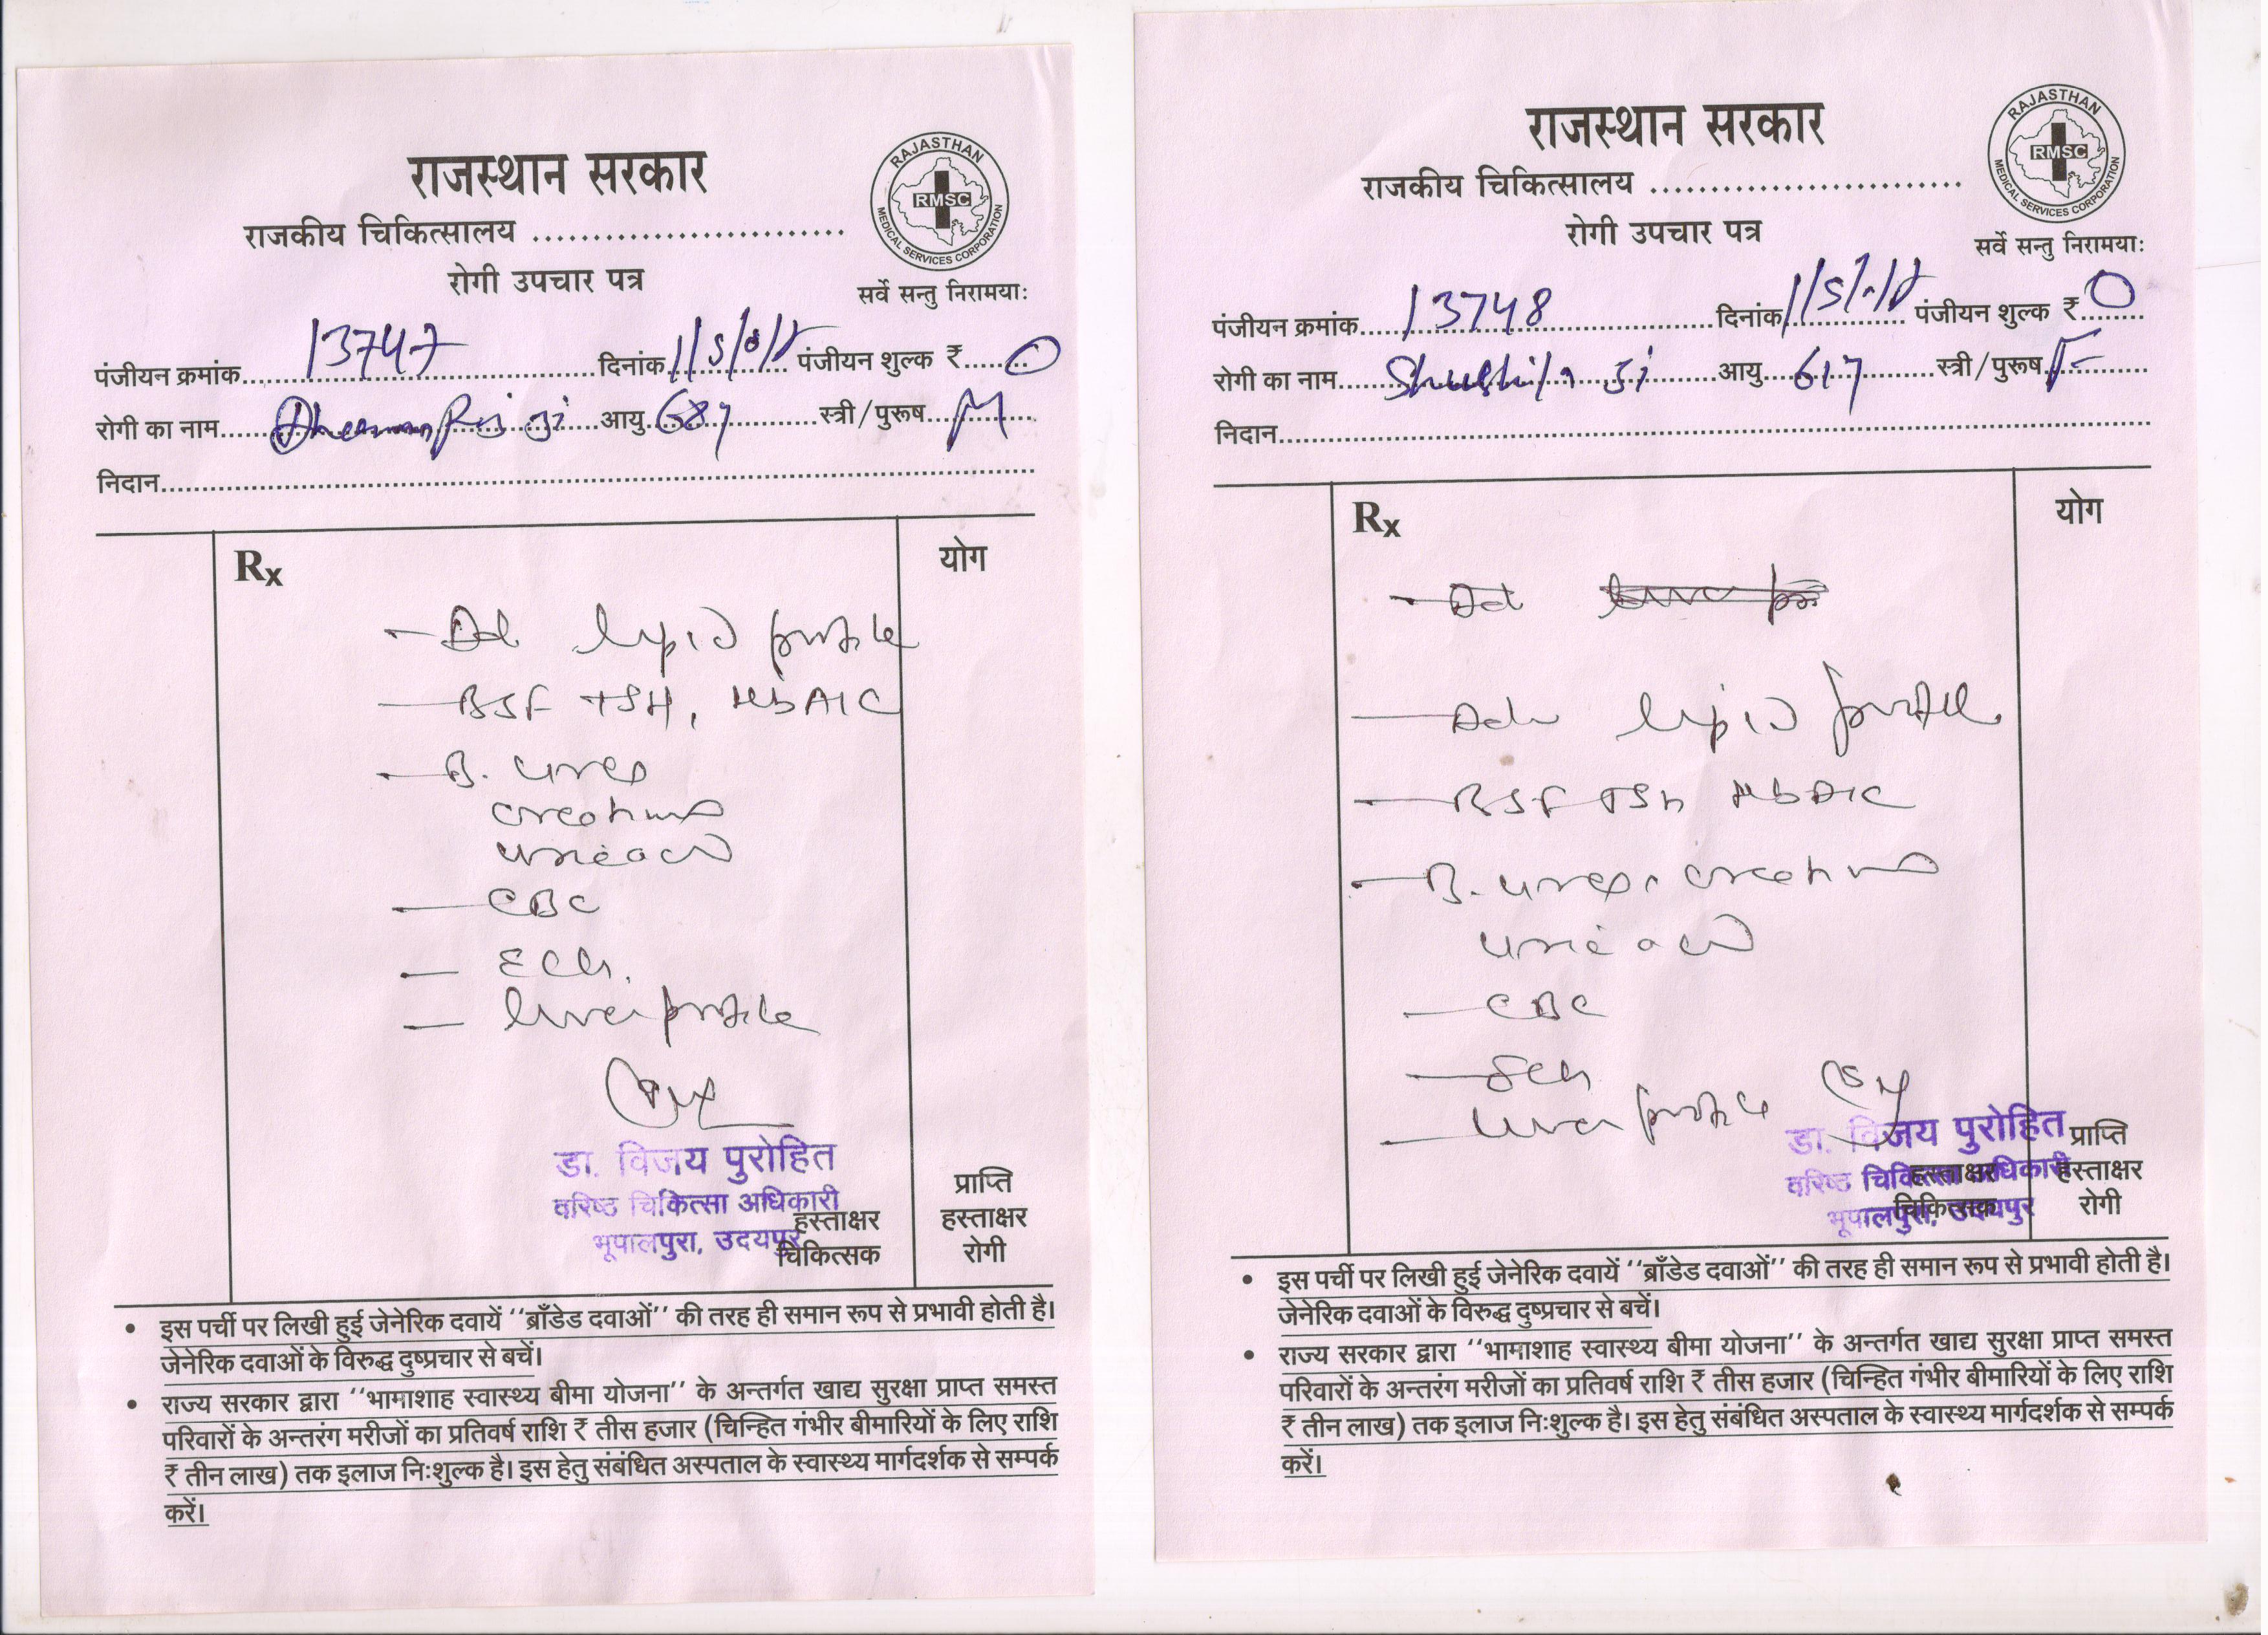 राजस्थान सरकार
राजकीय चिकित्सालय ..........................
रोगी उपचार पत्र
RAJASTHAN
RMSC
MEDICAL SERVICES CORPORATION
सर्वे सन्तु निरामयाः
पंजीयन क्रमांक 13747 दिनांक पंजीयन शुल्क ₹ 0
रोगी का नाम आयु 68y स्त्री/पुरूष M
निदान
Rx
योग
- Ad lipid profile
- BSF TSH, HbA1C
- B. urea
creatinine
uric acid
- CBC
- ECG.
- liver profile
डा. विजय पुरोहित
वरिष्ठ चिकित्सा अधिकारी
भूपालपुरा, उदयपुर
हस्ताक्षर
चिकित्सक
प्राप्ति
हस्ताक्षर
रोगी
• इस पर्ची पर लिखी हुई जेनेरिक दवायें ‘‘ब्राँडेड दवाओं’’ की तरह ही समान रूप से प्रभावी होती है।
जेनेरिक दवाओं के विरूद्ध दुष्प्रचार से बचें।
• राज्य सरकार द्वारा ‘‘भामाशाह स्वास्थ्य बीमा योजना’’ के अन्तर्गत खाद्य सुरक्षा प्राप्त समस्त
परिवारों के अन्तरंग मरीजों का प्रतिवर्ष राशि ₹ तीस हजार (चिन्हित गंभीर बीमारियों के लिए राशि
₹ तीन लाख) तक इलाज निःशुल्क है। इस हेतु संबंधित अस्पताल के स्वास्थ्य मार्गदर्शक से सम्पर्क
करें।
राजस्थान सरकार
राजकीय चिकित्सालय ..........................
रोगी उपचार पत्र
RAJASTHAN
RMSC
MEDICAL SERVICES CORPORATION
सर्वे सन्तु निरामयाः
पंजीयन क्रमांक 13748 दिनांक पंजीयन शुल्क ₹ 0
रोगी का नाम Shushila ji आयु 61y स्त्री/पुरूष F
निदान
Rx
योग
- Ad
- Adv lipid profile
- BSF TSH HbA1C
- B. urea, creatinine
uric acid
- CBC
- ECG
- liver profile
डा. विजय पुरोहित
वरिष्ठ चिकित्सा अधिकारी
भूपालपुरा, उदयपुर
हस्ताक्षर
चिकित्सक
प्राप्ति
हस्ताक्षर
रोगी
• इस पर्ची पर लिखी हुई जेनेरिक दवायें ‘‘ब्राँडेड दवाओं’’ की तरह ही समान रूप से प्रभावी होती है।
जेनेरिक दवाओं के विरूद्ध दुष्प्रचार से बचें।
• राज्य सरकार द्वारा ‘‘भामाशाह स्वास्थ्य बीमा योजना’’ के अन्तर्गत खाद्य सुरक्षा प्राप्त समस्त
परिवारों के अन्तरंग मरीजों का प्रतिवर्ष राशि ₹ तीस हजार (चिन्हित गंभीर बीमारियों के लिए राशि
₹ तीन लाख) तक इलाज निःशुल्क है। इस हेतु संबंधित अस्पताल के स्वास्थ्य मार्गदर्शक से सम्पर्क
करें।